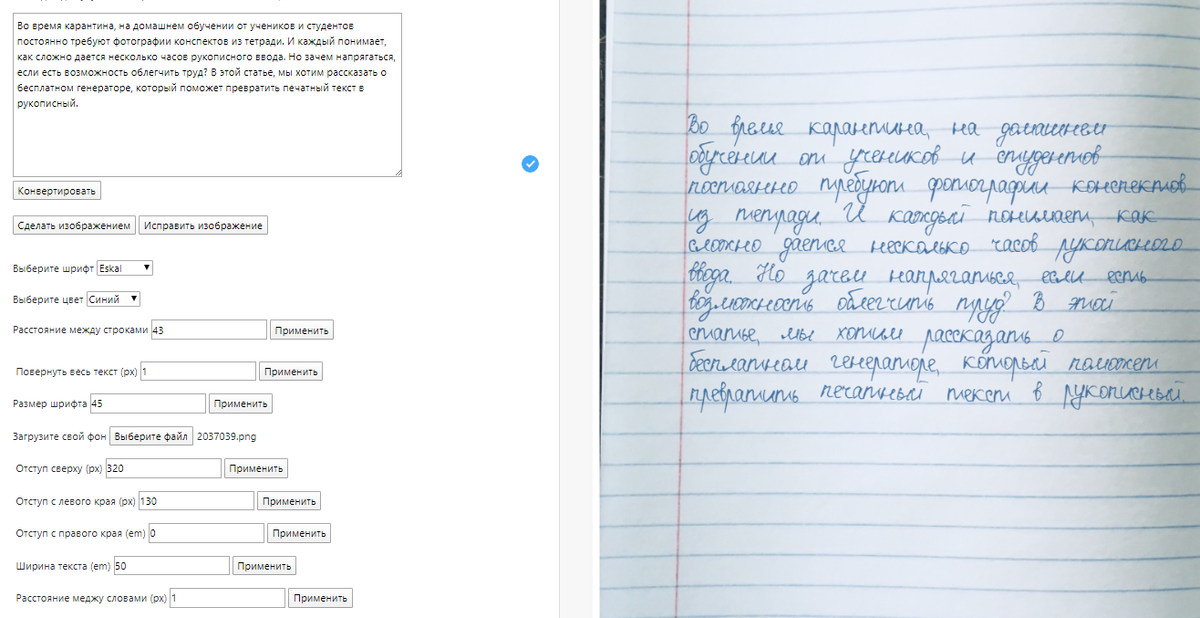 Во время карантина, на домашнем обучении от учеников и студентов
постоянно требуют фотографии конспектов из тетради. И каждый понимает,
как сложно дается несколько часов рукописного ввода. Но зачем напрягаться,
если есть возможность облегчить труд? В этой статье, мы хотим рассказать о
бесплатном генераторе, который поможет превратить печатный текст в
рукописный.
Конвертировать
Сделать изображением Исправить изображение
Выберите шрифт Eskal
Выберите цвет Синий
Расстояние между строками 43 Применить
Повернуть весь текст (px) 1 Применить
Размер шрифта 45 Применить
Загрузите свой фон Выберите файл 2037039.png
Отступ сверху (px) 320 Применить
Отступ с левого края (px) 130 Применить
Отступ с правого края (em) 0 Применить
Ширина текста (em) 50 Применить
Расстояние меджу словами (px) 1 Применить
Во время карантина, на домашнем
обучении от учеников и студентов
постоянно требуют фотографии конспектов
из тетради. И каждый понимает, как
сложно дается несколько часов рукописного
ввода. Но зачем напрягаться, если есть
возможность облегчить труд? В этой
статье, мы хотим рассказать о
бесплатном генераторе, который поможет
превратить печатный текст в рукописный.